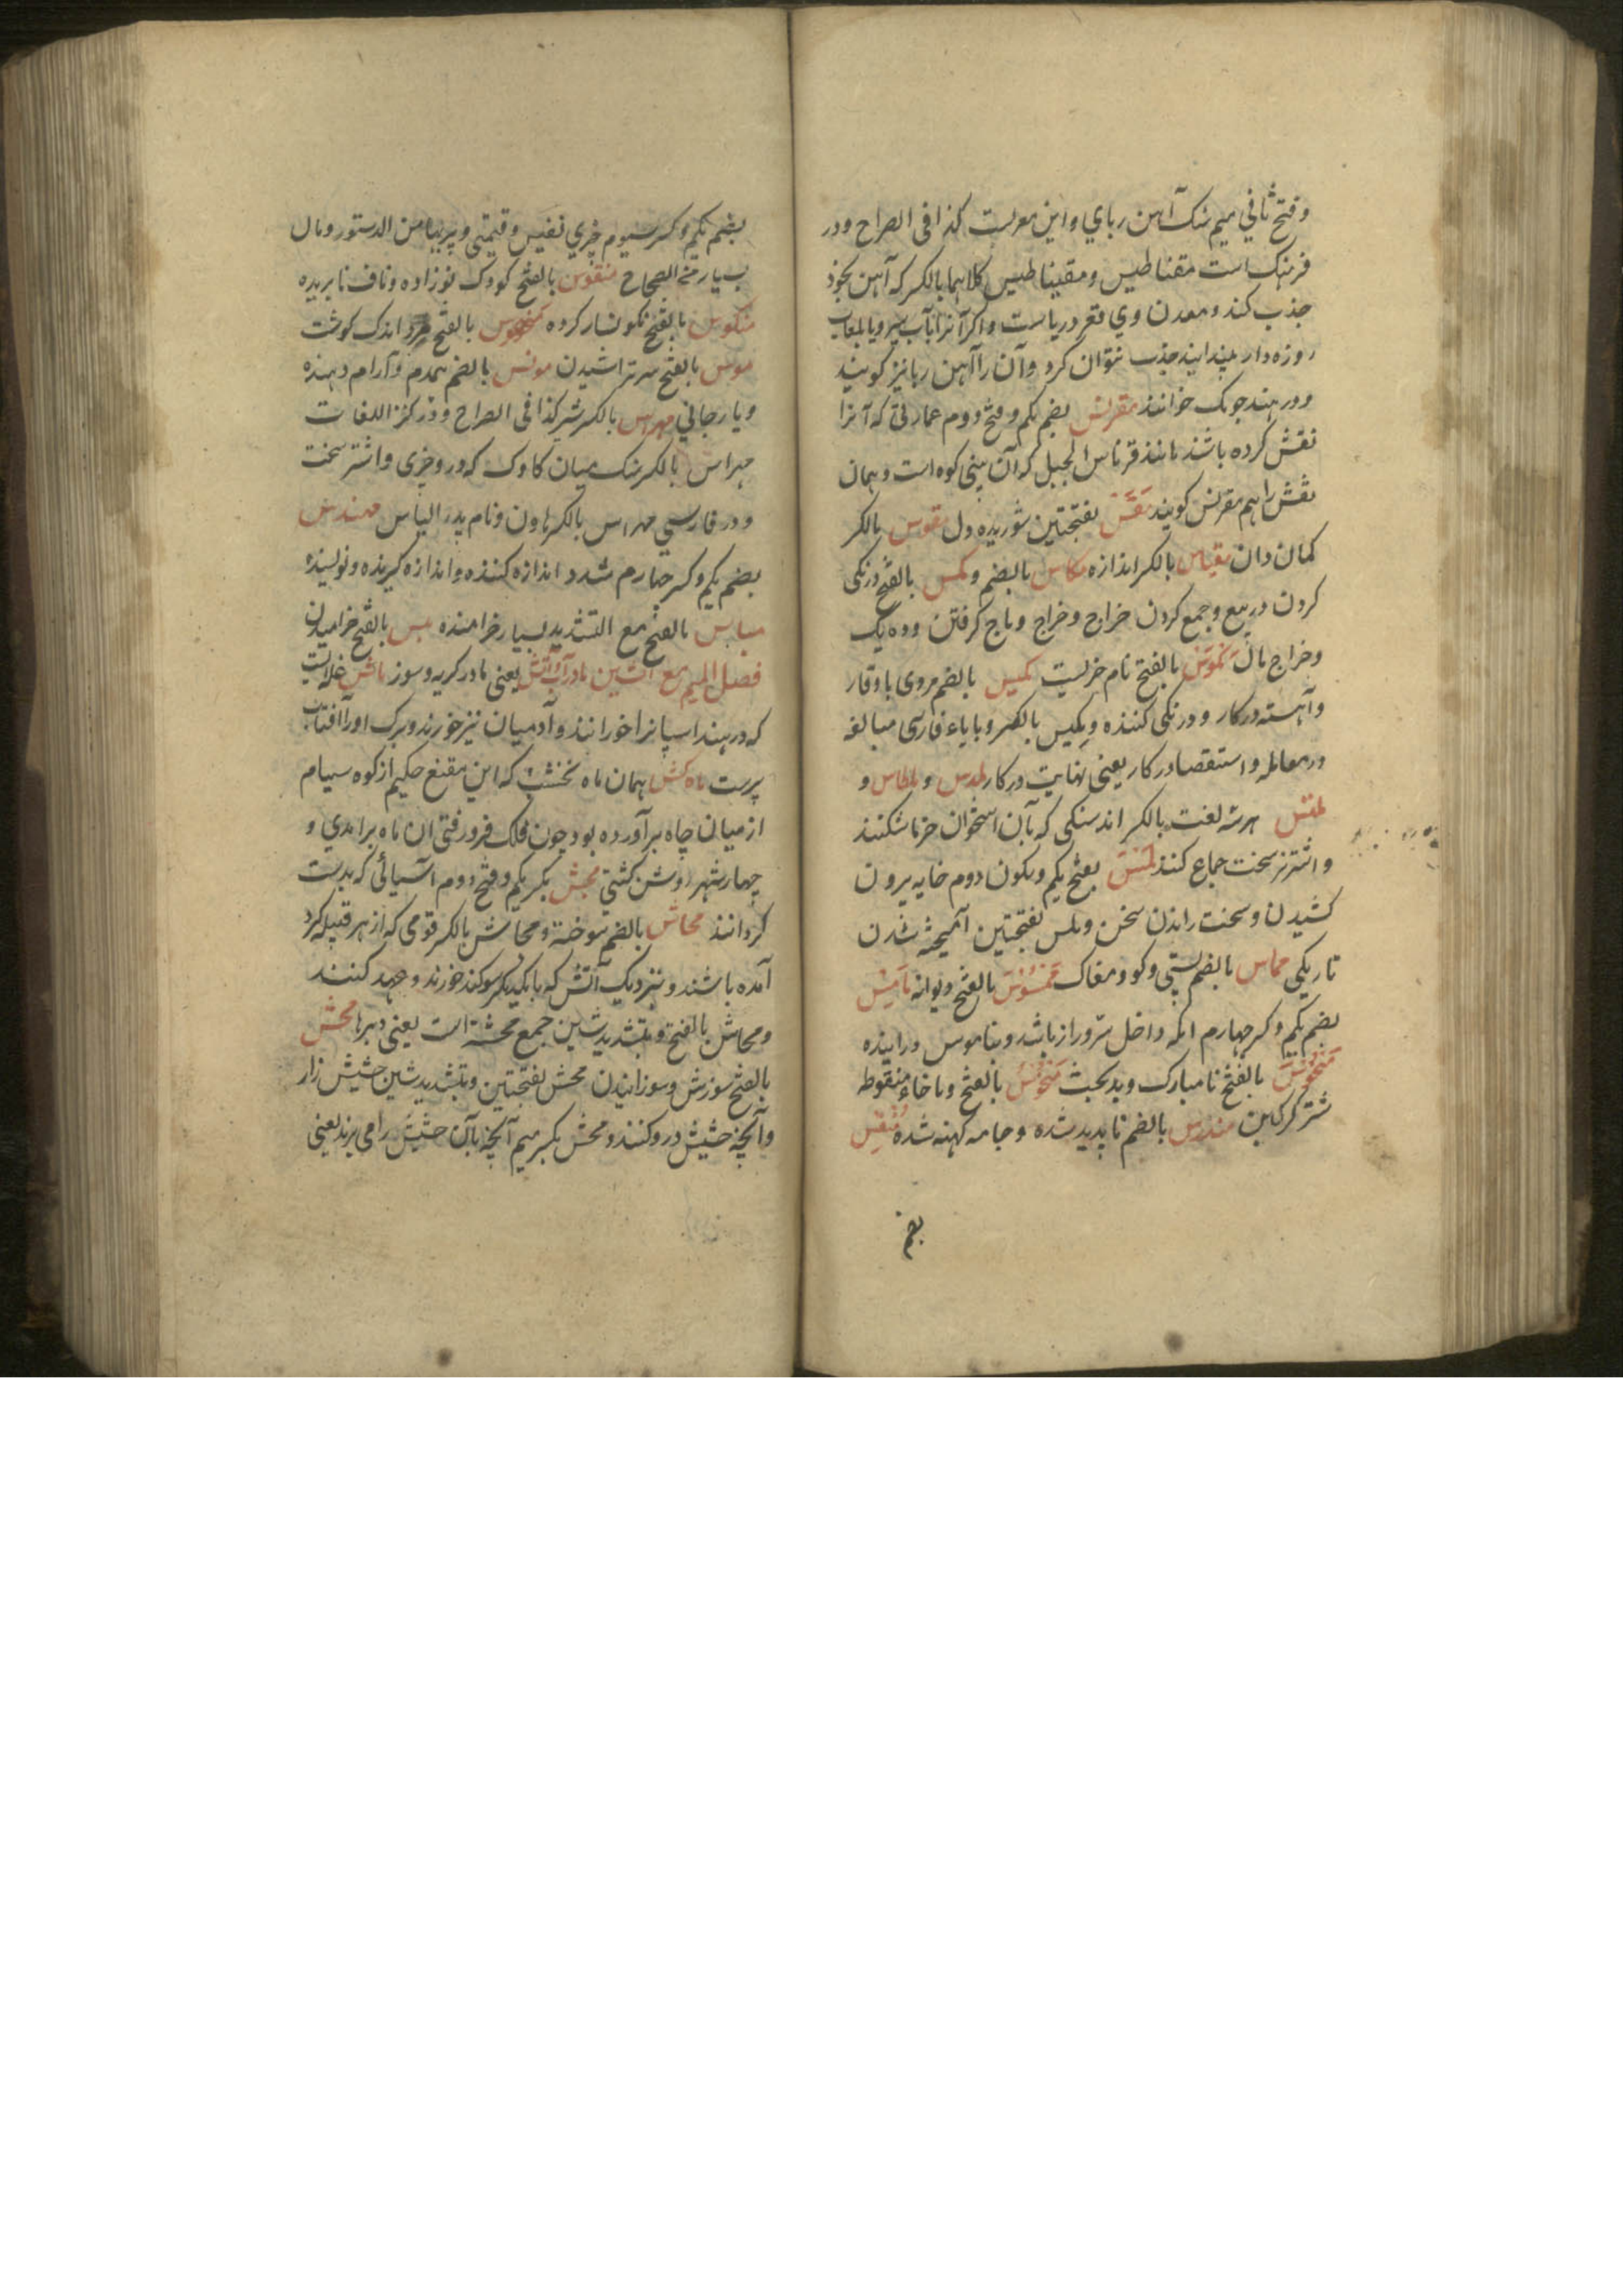 و فتح ثانی میم سنک آهن ربای و این معربست کذا فی الصراح و در
فرهنک است مقناطیس و مقیناطیس کلاهما بالکسر که آهن بخود
جذب کند و معدن وی قعر دریا ست و اکر آنرا بآب سیر و یا بلعاب
روزه دار چند انید جذب نتوان کرد و آن را آهن ربا نیز کویند
و در هند چومک خوانند مقرنس بضم یکم و فتح دوم عمارتی که آنرا
نقش کرده باشند مانند قرناس الجبل که آن بینی کوه است و همان
نقش را هم مقرنس کویند مقس بفتحتین شوریده دل مقوس بالکسر
کمان دان مقیاس بالکسر اندازه مکاس بالضم و مکس بالفتح درنکی
کردن در بیع و جمع کردن خراج و خراج و باج کرفتن و ده یک
و خراج مال مکوس بالفتح نام خریست مکیس بالضم مردی با وقار
و آهسته در کار و درنکی کننده و مکیس بالکسر و با یاء فارسی مبالغه
در معامله و استقصا در کار یعنی نهایت در کار ملدس و ملطاس و
ملقس هرسه لغت بالکسر اند سنکی که بآن استخوان خرما شکنند
و اشتر نر سخت جماع کننده ملس بفتح یکم و سکون دوم خایه بیرون
کشیدن و سخت راندن سخن و ملس بفتحتین آمیخته شدن
تاریکی مماس بالضم پستی و کو و مغاک ممسوس بالفتح دیوانه نامیس
بضم یکم و کسر چهارم انکه داخل سر و راز باشد و بناموس در اینده
منحوس بالفتح نامبارک و بدبخت منخوس بالفتح و با خاء منقوطه
شتر کرکین مندرس بالضم ناپدید شده و جامه کهنه شده منفس
بضم
بضم یکم و کسر سیوم چیزی نفیس و قیمتی و پربها من الدستور و مال
بسیار من الصحاح منفوس بالفتح کودک نوزاده و ناف نابریده
منکوس بالفتح نکونسار کرده منهوس بالفتح مرد اندک کوشت
موس بالفتح سر تراشیدن مونس بالضم همدم و آرام دهنده
و یار جانی مهراس بالکسر شیر کذا فی الصراح و در کنز اللغات
مهراس بالکسر سنک میان کاوک که در و چیزی و اشتر سخت
و در فارسی مهراس بالکسر هاون و نام پدر الیاس مهندس
بضم یکم و کسر چهارم مشدد اندازه کننده و اندازه کیرنده و نویسنده
میاس بالفتح مع التشدید بسیار خرامنده میس بالفتح خرامیدن
فصل المیم مع الشین مادر آب آتش یعنی مادر کریه و سوز ماش غله ایست
که در هند اسپانرا خورانند و آدمیان نیز خورند و برک او را آفتاب
پرست ماه کش همان ماه نخشب که این مقنع حکیم از کوه سیام
از میان چاه بر آورده بود چون فلک فرو رفتی ان ماه برامدی و
چهار شهر روشن کشتی مجش بکسر یکم و فتح دوم آسیائی که بدست
کردانند محاش بالضم سوخته و محاش بالکسر قومی که از هر قبیله کرد
آمده باشند و نزدیک آتش که با یکدیکر سوکند خورند و عهد کنند
و محاش بالفتح و بتشدید شین جمع محشة است یعنی دبرها محش
بالفتح سوزش و سوزانیدن محش بفتحتین و بتشدید شین حشیش زار
و آنچه حشیش درو کنند و محش بکسر میم آنچه بآن حشیش را می برند یعنی